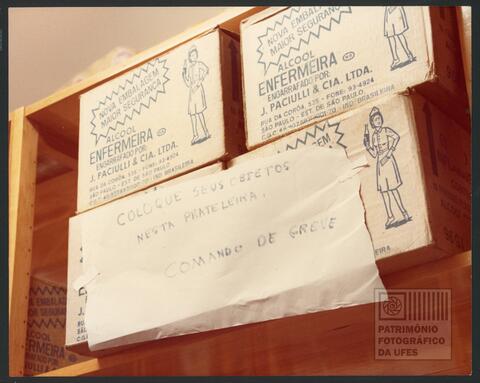 NOVA EMBALAGEM
MAIOR SEGURANÇA
ALCOOL
ENFERMEIRA
ENGARRAFADO POR:
J. PACIULLI & CIA. LTDA.
RUA DA CORÔA, 535 - FONE: 93-4924
SÃO PAULO - EST. DE SÃO PAULO
IND BRASILEIRA
NOVA EMBALAGEM
MAIOR SEGURANÇA
ALCOOL
ENFERMEIRA
ENGARRAFADO POR:
J. PACIULLI & CIA. LTDA.
RUA DA CORÔA, 535 - FONE: 93-4924
SÃO PAULO - EST. DE SÃO PAULO
IND BRASILEIRA
COLOQUE SEUS OBJETOS
NESTA PRATELEIRA.
COMANDO DE GREVE
NOVA EMBALAGEM
MAIOR SEGURANÇA
ALCOOL
ERMEIRA
PATRIMÔNIO
FOTOGRÁFICO
DA UFES